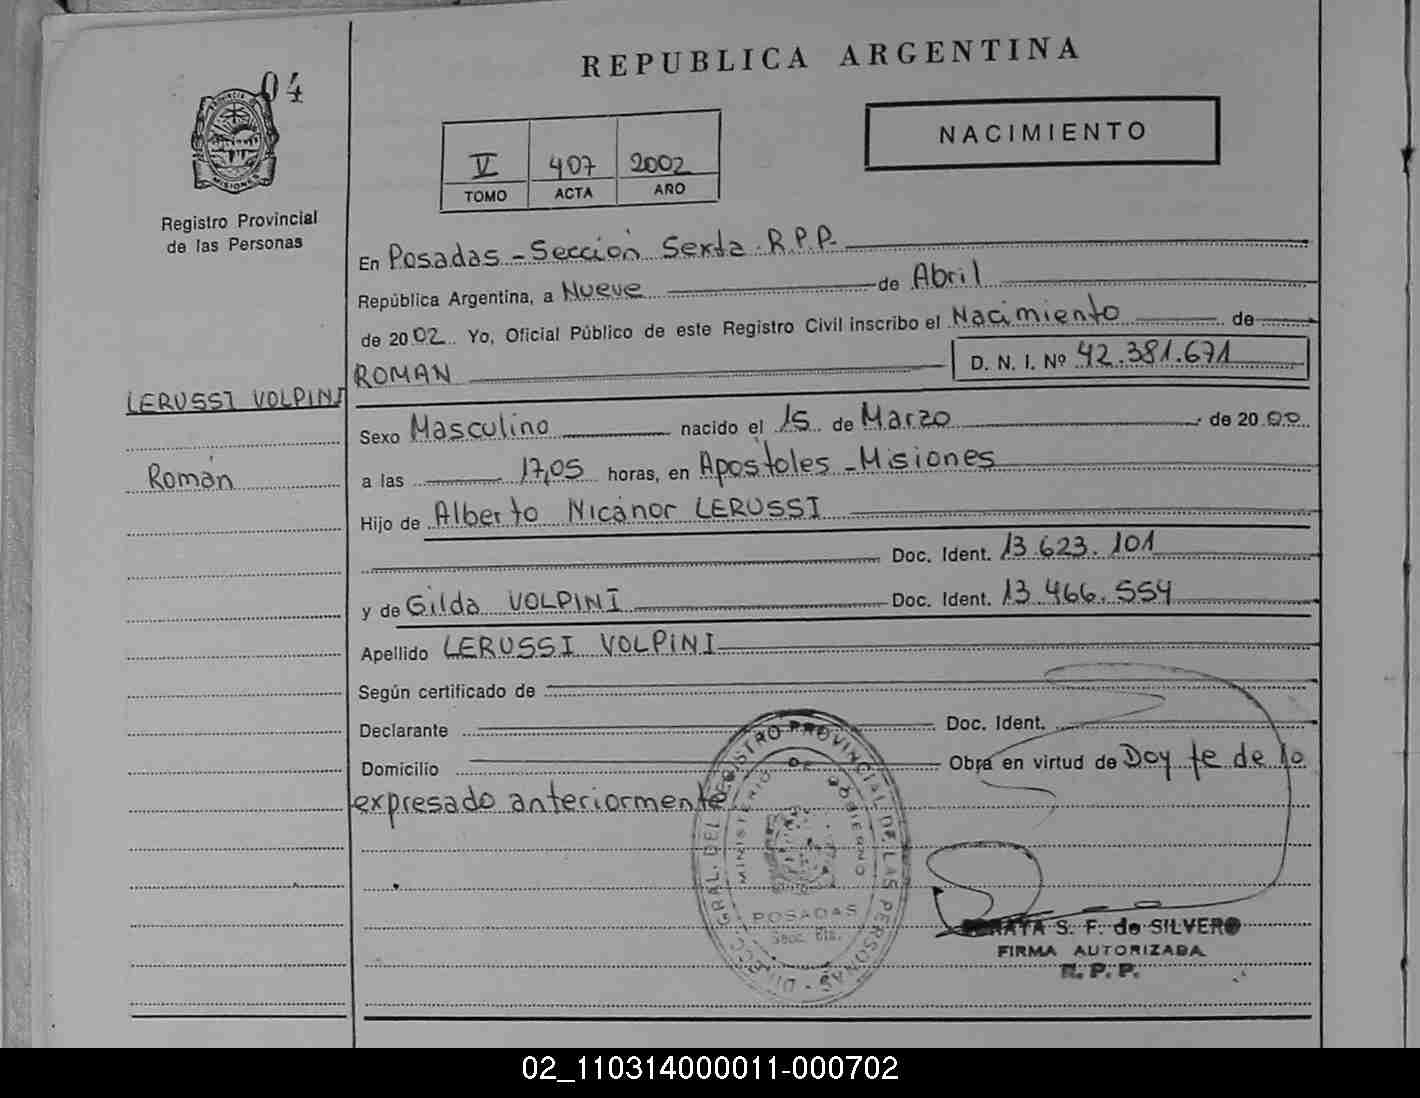 04
PROVINCIA DE
MISIONES
Registro Provincial
de las Personas
LERUSSI VOLPINI
Román
REPUBLICA ARGENTINA
NACIMIENTO
V 407 2002
TOMO ACTA AÑO
En Posadas - Sección Sexta R.P.P.
República Argentina, a Nueve de Abril
de 2002 Yo, Oficial Público de este Registro Civil inscribo el Nacimiento de
ROMAN D. N. I. Nº 42.381.671
Sexo Masculino nacido el 15 de Marzo de 2000
a las 17,05 horas, en Apóstoles - Misiones
Hijo de Alberto Nicanor LERUSSI
Doc. Ident. 13.623.101
y de Gilda VOLPINI Doc. Ident. 13.466.554
Apellido LERUSSI VOLPINI
Según certificado de
Declarante Doc. Ident.
Domicilio Obra en virtud de Doy fe de lo
expresado anteriormente
DIRECC. GRAL. DEL REGISTRO PROVINCIAL DE LAS PERSONAS
MINISTERIO DE GOBIERNO
POSADAS
Secc. 6ta.
S. F. de SILVERO
FIRMA AUTORIZADA
R. P. P.
02_110314000011-000702